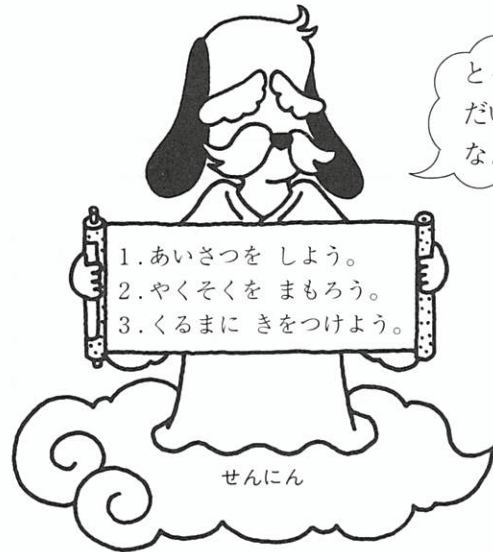 1.あいさつを しよう。
2.やくそくを まもろう。
3.くるまに きをつけよう。
せんにん